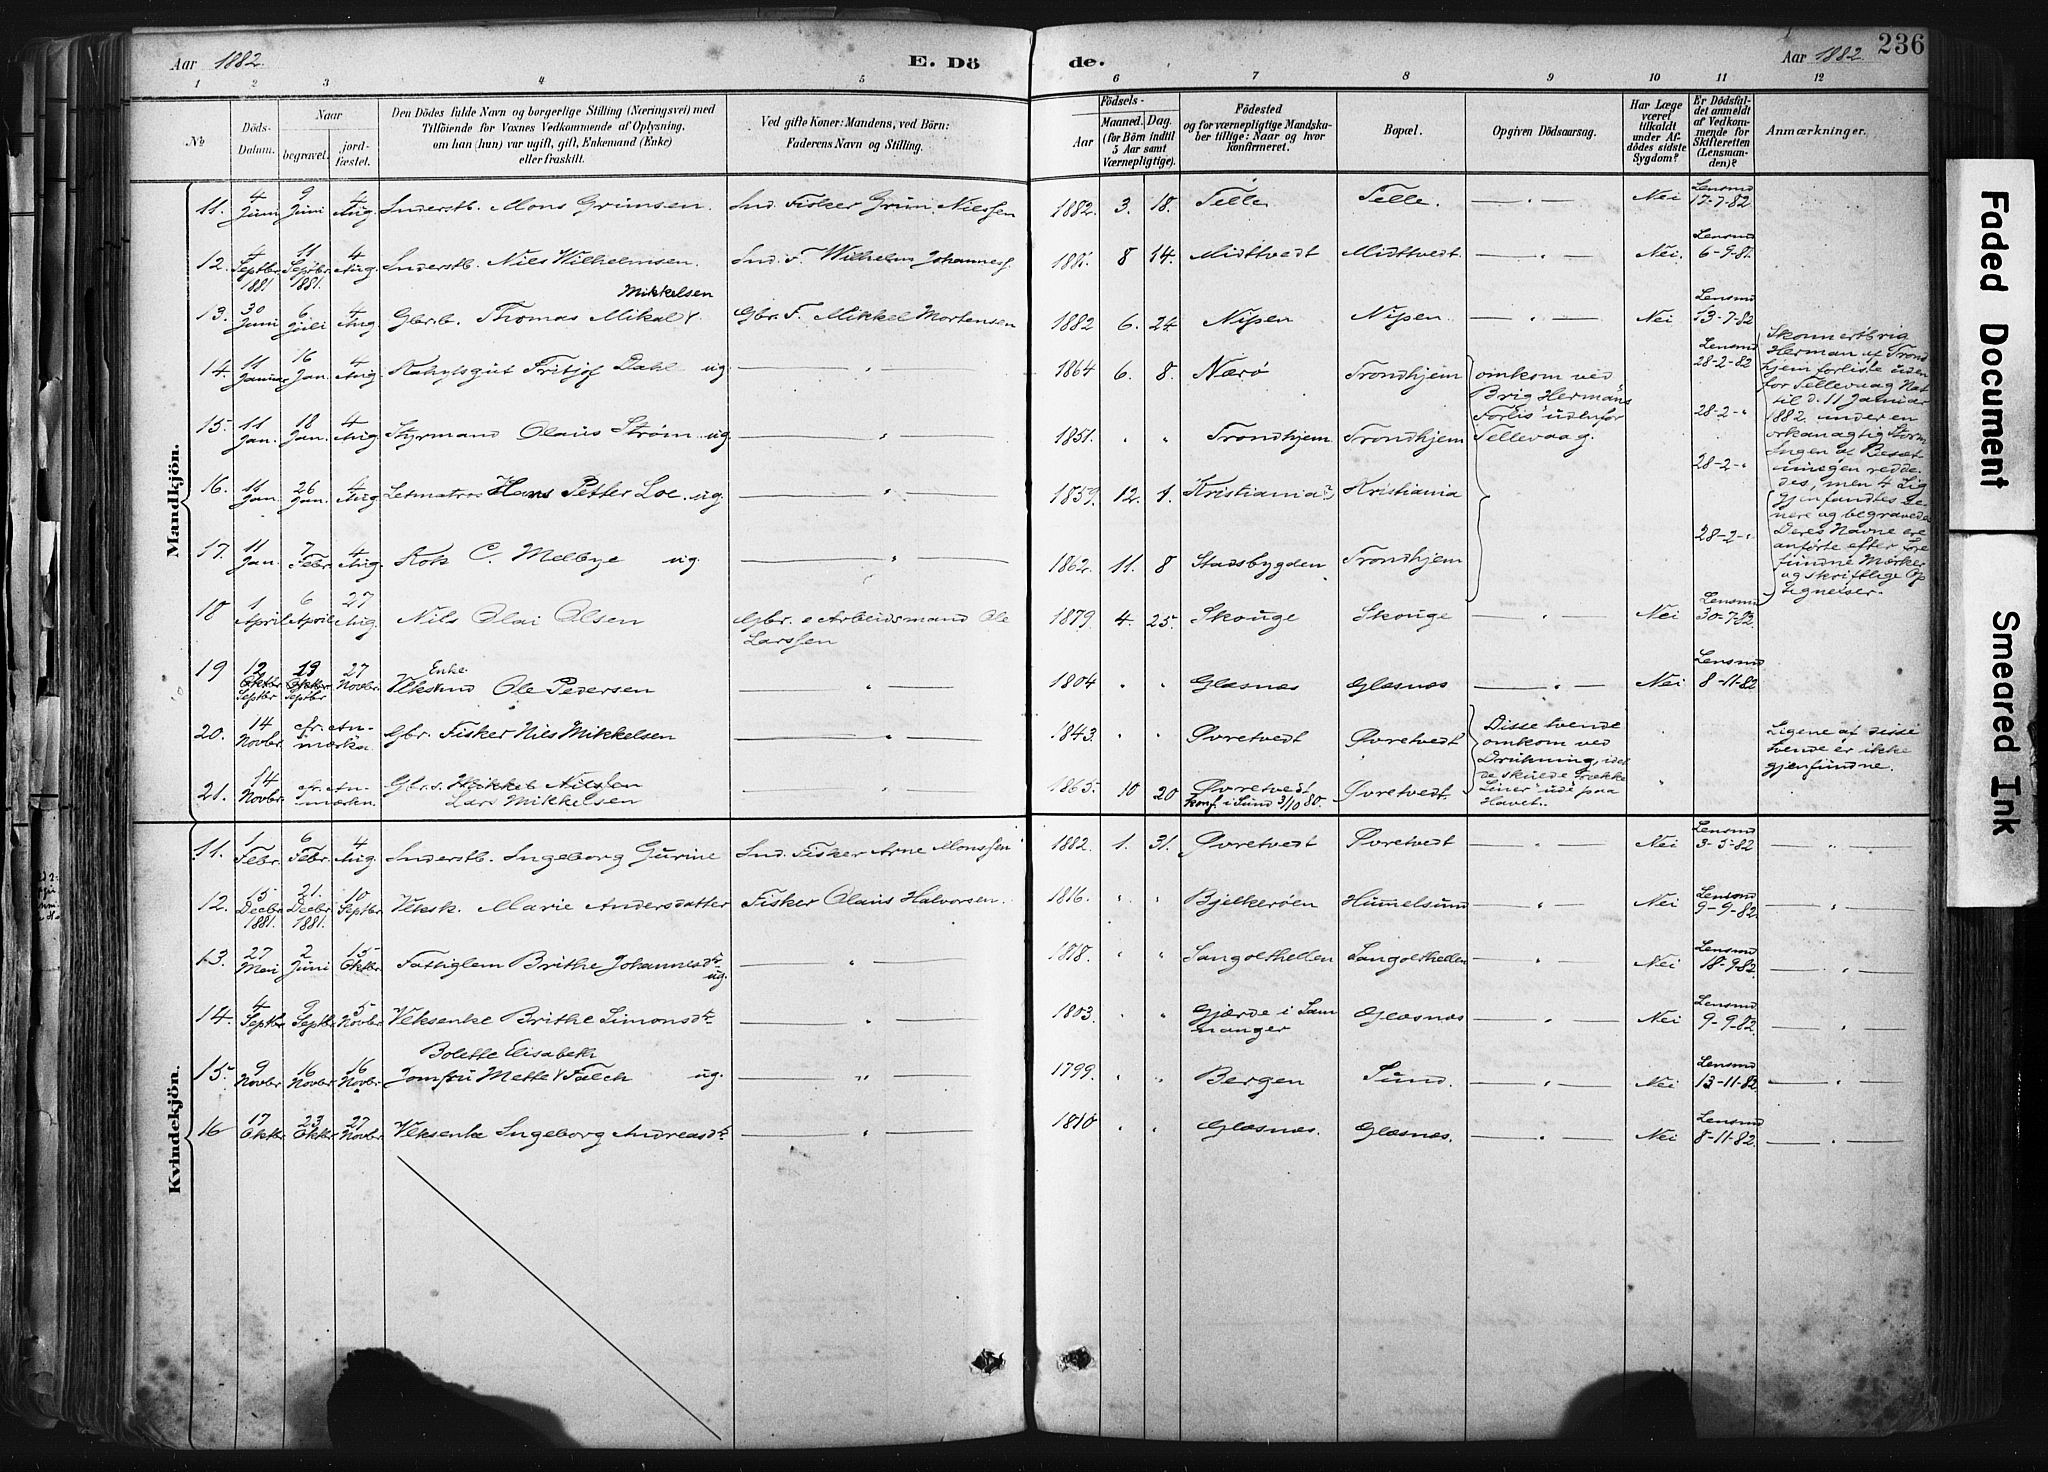 Aar 1882. E. Dö de. Aar 1882. 236
1 2 3 4 5 6 7 8 9 10 11 12
No
Döds-Datum.
Naar begravet. jordfæstet.
Den Dödes fulde Navn og borgerlige Stilling (Næringsvei) med
Tilföiende for Voxnes Vedkommende af Oplysning,
om han (hun) var ugift, gift, Enkemand (Enke)
eller fraskilt.
Ved gifte Koner: Mandens, ved Börn:
Faderens Navn og Stilling.
Födsels-
Aar Maaned. Dag.
(for Börn indtil
5 Aar samt
Værnepligtige).
Födested
og for værnepligtige Mandska-
ber tillige: Naar og hvor
konfirmeret.
Bopæl.
Opgiven Dödsaarsag.
Har Læge
været
tilkaldt
under Af-
dödes sidste
Sygdom?
Er Dödsfal-
det anmeldt
af Vedkom-
mende for
Skifteretten
(Lensman-
den)?
Anmærkninger.
Mandkjön.
11. 4 Juni 9 Juni 4 Aug. Inderstb. Mons Grunsen. Ind. Fisker Grun Nilssen 1882. 3. 18. Telle. Telle. — " — Nei Lensmd 17-7-82.
12. 4 Septbr 1881 11 Septbr 1881. 4 Aug. Inderstb. Nils Wilhelmsen. Ind. F. Wilhelm Johanness. 8 14. Midttvedt Midttvedt. — " — Nei. Lensmd 6-9-81.
13. 30 Juni 6 Juli 4 Aug. Gbrb. Thomas Mikal Mikkelsen Gbr. F. Mikkel Mortensen 1882 6. 24. Nipen Nipen. — " — Nei Lensmd 13-7-82
14. 11 Januar 16 Jan. 4 Aug. Kahytsgut Fritjof Dahl ug — " — 1864 6. 8. Nærö Trondhjem Lensmd 28-2-82
15. 11 Jan. 18 Jan. 4 Aug Styrmand Olaus Strøm ug. — " — 1851. " " Trondhjem. Trondhjem 28-2-"
16. 11 Jan. 26 Jan. 4 Aug Letmatros Hans Petter Loe. ug. — " — 1859. 12. 1. Kristiania?) Kristiania 28-2-"
17. 11 Jan. 7 Febr. 4 Aug Kok C. Melbye ug. — " — 1862. 11. 8 Stadsbygden Trondhjem 28-2-"
omkom ved
Brig Hermans
Forlis udenfor
Tellevaag.
Skonnertbrig
Herman af Trond
hjem forliste uden
for Tellevaag Nat
til d. 11 Januar
1882 under en
orkanagtig Storm
Ingen af Besæt
ningen redde
des, men 4 Lig
gjenfandtes se
nere og begravedes
Deres Navne ere
anførte efter fore
fundne Mærker
og skriftlige Op
tegnelser.
18 1 April 6 April 27 Aug. Nils Olai Olsen Gbr. o Arbeidsmand Ole
Larssen 1879. 4. 25. Skouge Skouge — " — Nei Lensmd 30-7-82.
19 12 Oktbr Septbr 19 Oktbr Septbr 27 Novbr. Enke
Veksmd Ole Pedersen — " — 1804 " " Glesnes Glesnes — " — Nei Lensmd 8-11-82
20. 14 Novbr. cfr. An-
mærkn. Gbr. Fisker Nils Mikkelsen — " — 1843. Øvretvedt Øvretvedt
21. 14 Novbr. cfr. An-
mærkn. Gbr.s. Nilssen
Lars Mikkelsen " 1865. 10 20 Øvretvedt
konf. i Sund 3/10 80. Øvretvedt.
Disse tvende
omkom ved
Drukning, idet
de skulde trække
Liner ude paa
Havet.
Ligene af disse
tvende er ikke
gjenfundne.
Kvindekjön.
11. 1 Febr. 6 Febr. 4 Aug Inderstb. Ingeborg Gurine Ind. Fisker Arne Monssen 1882. 1. 31. Øvretvedt Øvretvedt — " — Nei Lensmd 3-5-82 — " —
12. 15 Decbr 1881. 21. Decbr 1881. 10 Septbr Veksk. Marie Andersdatter Fisker Olaus Halvorsen. 1816. " " Bjelkeröen Hummelsund — " — Nei Lensmd 9-9-82. — " —
13. 27 Mai 2 Juni 15 Oktbr. Fattiglem Brithe Johannesdtr
ug. — " — 1818. " " Sangolthellen Sangolthellen — " — Nei Lensmd 18-9-82. — " —
14. 4 Septbr 9 Septbr 5 Novbr Veksenke Brithe Simonsdtr — " — 1803. " " Gjærde i Sam
nanger Glesnes — " — Nei Lensmd 9-9-82. — " —
15. 9 Novbr. 16 Novbr. 16 Novbr. Bolette Elisabeth
Jomfru Mette Falch ug. — " — 1799. " " Bergen Sund. — " — Nei Lensmd 13-11-82 — " —
16 17 Oktbr 23 Oktbr 27 Novbr Veksenke Ingeborg Andreasdtr — " — 1810 " " Glesnes. Glesnes. — " — Nei Lensmd 8-11-82. — " —
Faded Document
Smeared Ink